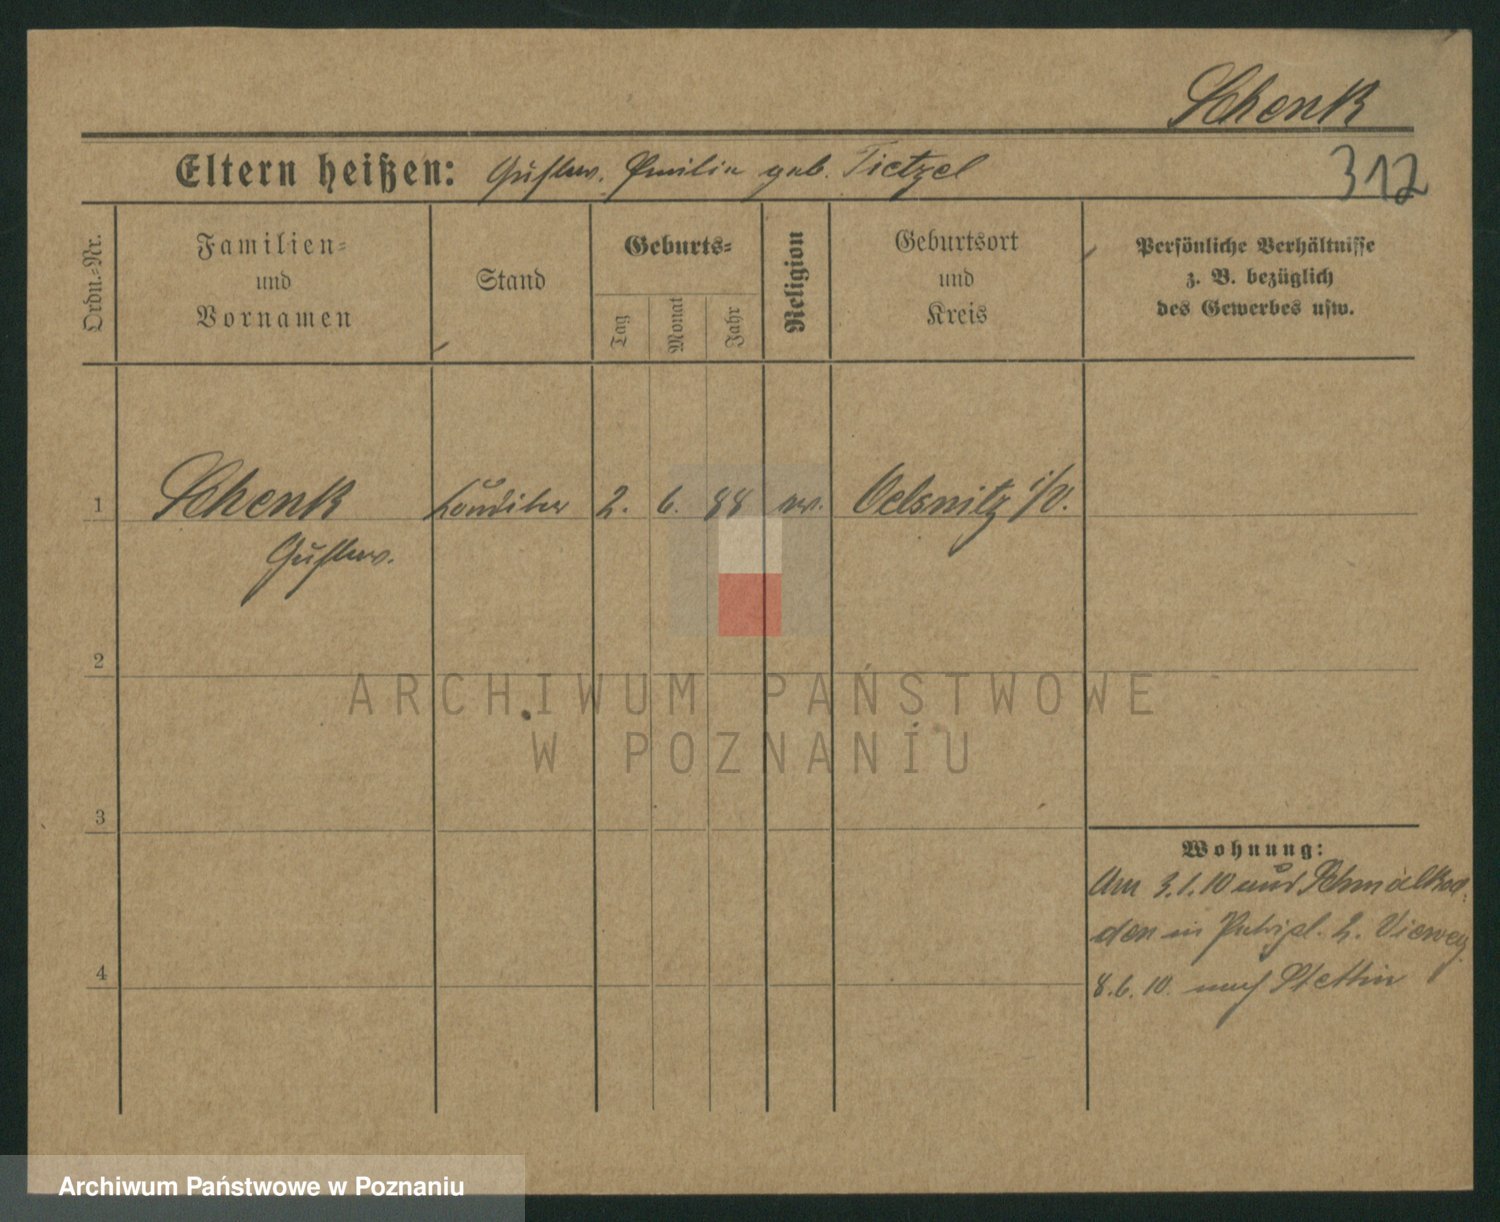 Schenk
Eltern heißen: Gustav. Emilie geb. Tietzel
312
Ordn.=Nr.
Familien=
und
Vornamen
Stand
Geburts=
Tag
Monat
Jahr
Religion
Geburtsort
und
Kreis
Persönliche Verhältnisse
z. B. bezüglich
des Gewerbes usw.
1
Schenk
Gustav.
Konditor
2. 6. 88 ev. Oelsnitz i/V.
2
3
4
Wohnung:
Am 3.1.10 aus Schmalkal-
den in
8.6.10. nach Stettin
ARCHIWUM PAŃSTWOWE
W POZNANIU
Archiwum Państwowe w Poznaniu